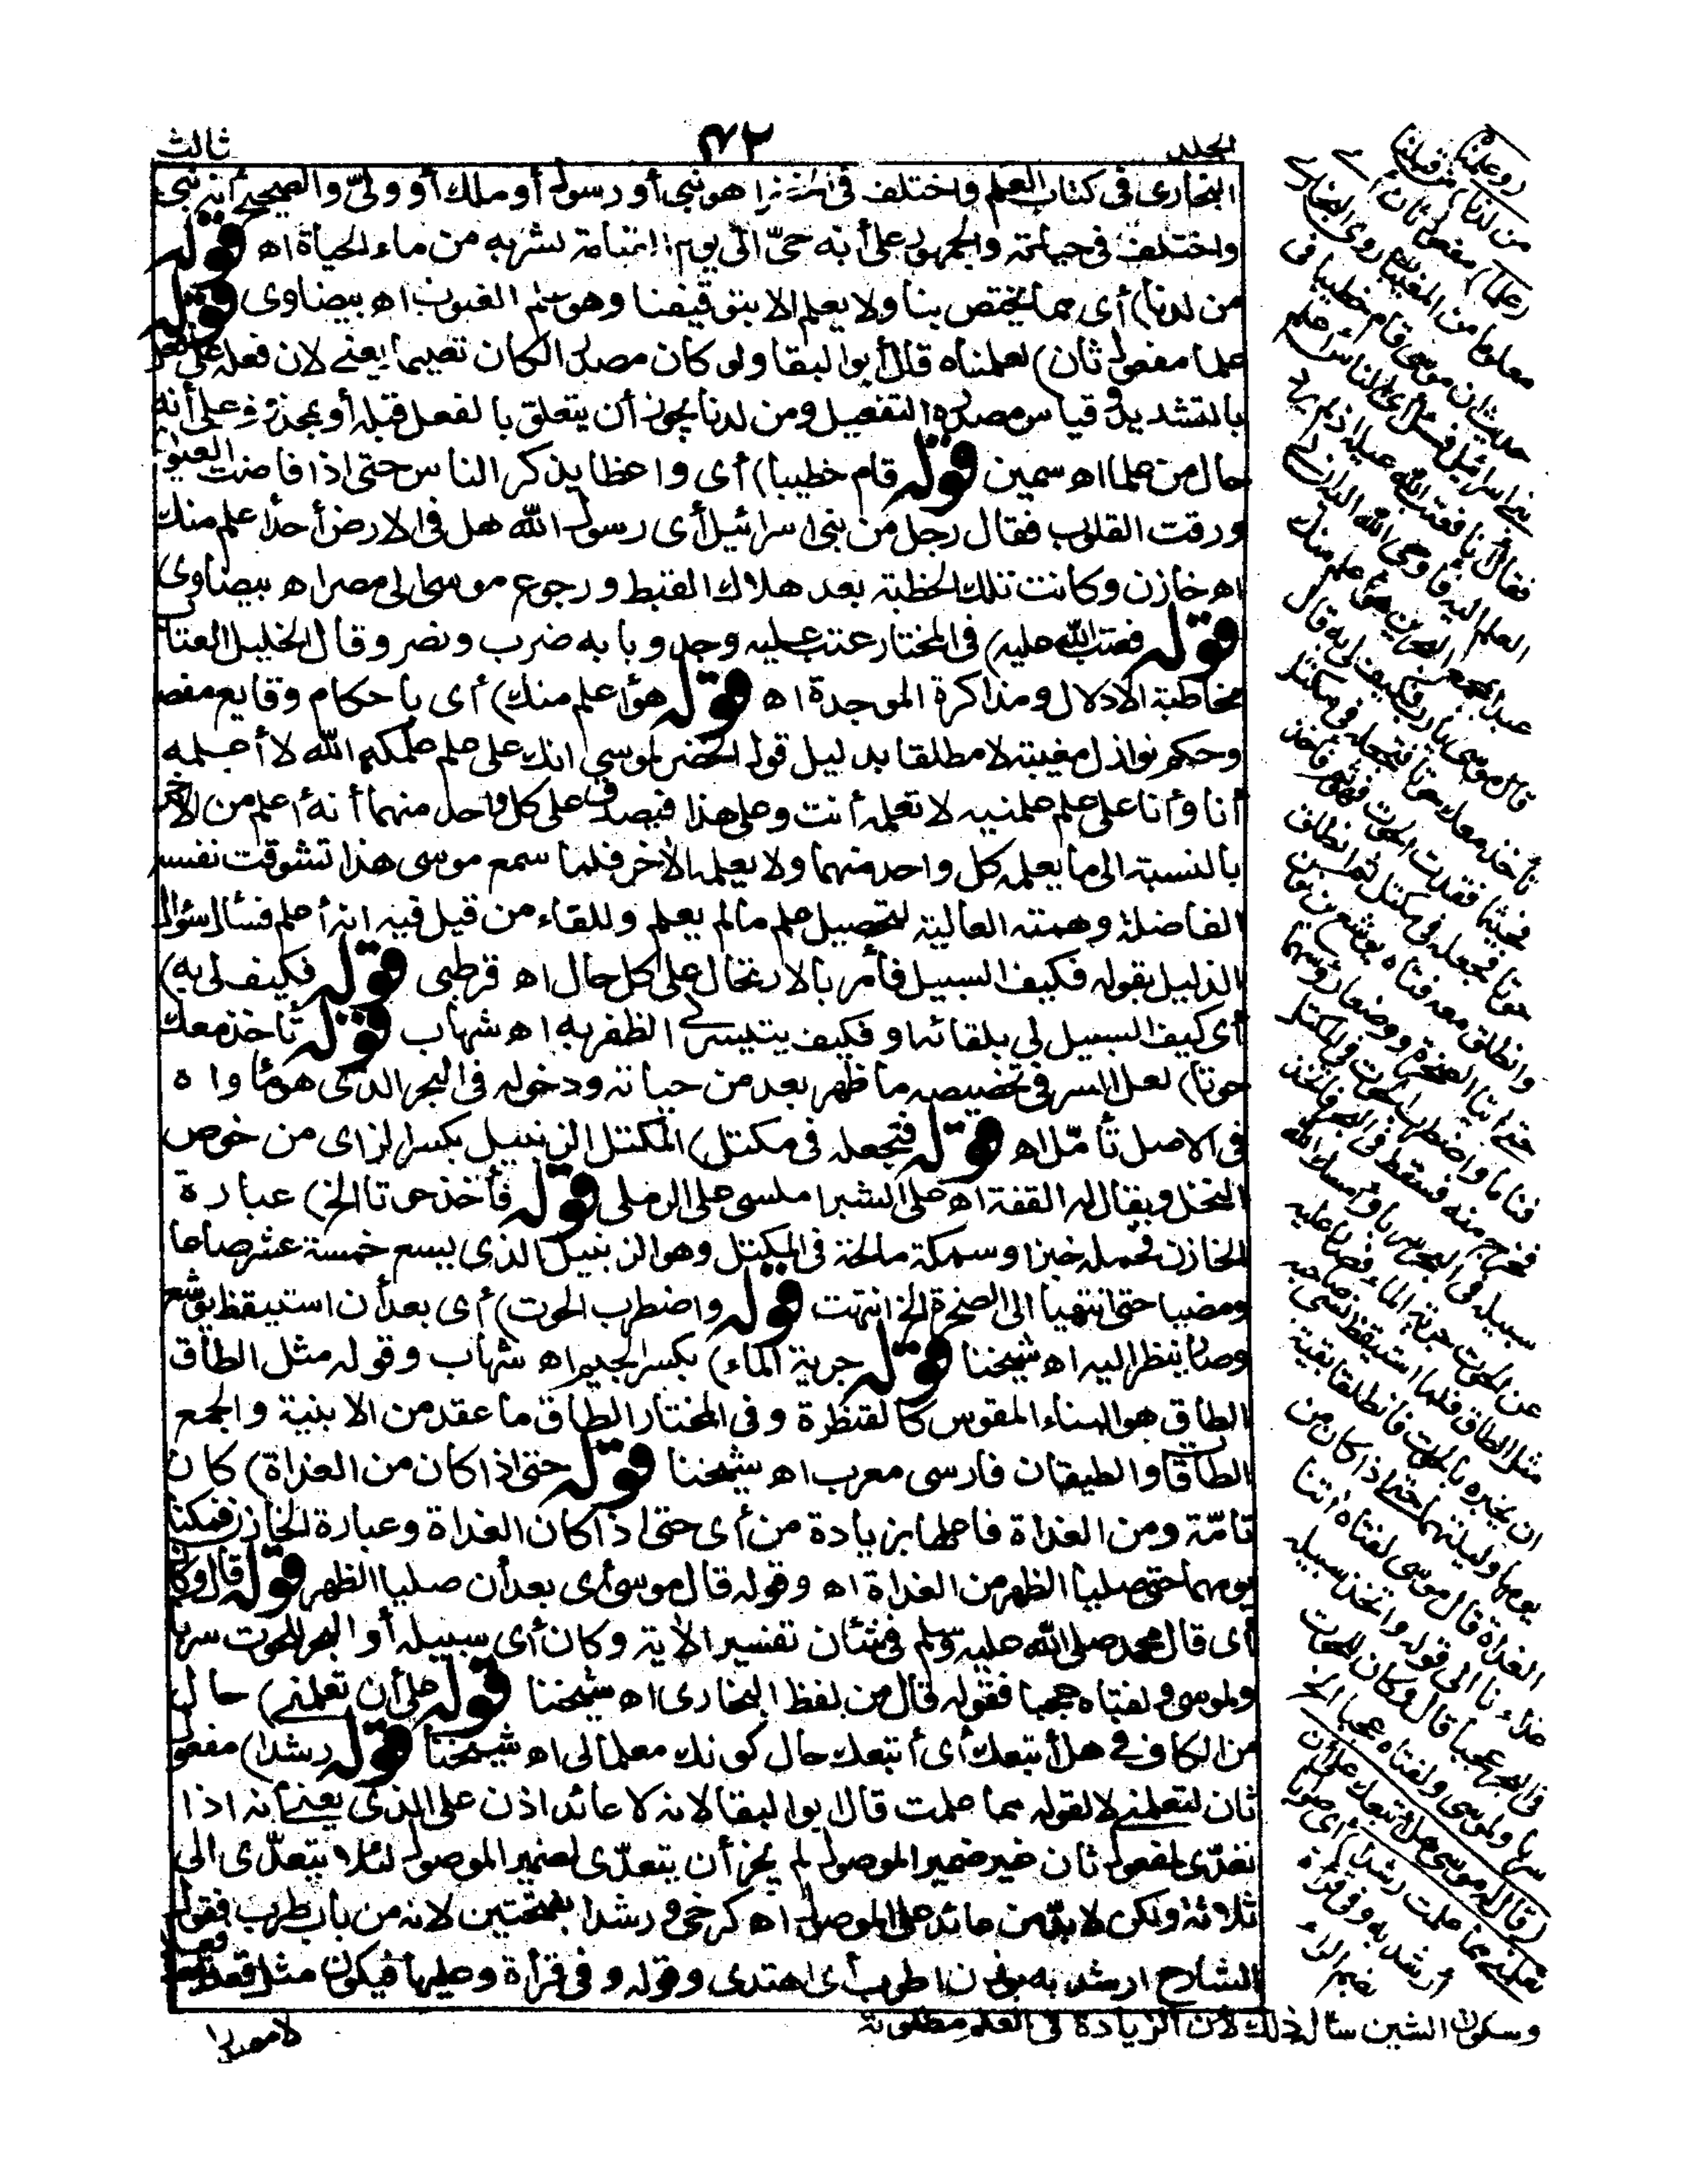 الجلد ٤٢ ثالث
البخارى فى كتاب العلم واختلف فى هو نبى أو رسول أو ملك أو ولىّ والصحيح أنه نبى
واختلف فى حياته والجمهور على أنه حىّ الى يوم لشربه من ماء الحياة اه قوله
من لدنا) أى مما يختص بنا ولا يعلم الا بتوقيفنا وهو علم الغيوب اه بيضاوى قوله
علما مفعول ثان) لعلمناه قال أبو البقا ولو كان مصدرا لكان تعليما يعنے لان فعله على فعل
بالتشديد وقياس مصدره التفعيل ومن لدنا يجوز أن يتعلق بالفعل قبله أو بمحذوف على أنه
حال من علما اه سمين قوله قام خطيبا) أى واعظا يذكر الناس حتى اذا فاضت العيون
ورقت القلوب فقال رجل من بنى اسرائيل أى رسول الله هل فى الارض أحد اعلم منك
اه خازن وكانت تلك الخطبة بعد هلاك القبط ورجوع موسى الى مصر اه بيضاوى
قوله فعتب الله عليه) فى المختار عتب عليه وجد وبابه ضرب ونصر وقال الخليل العتاب
مخاطبة الادلال ومذاكرة الموجدة اه قوله هو أعلم منك) أى بأحكام وقايع مفصلة
وحكم نوازل معينة لا مطلقا بدليل قول الخضر لموسى انك على علم علمكه الله لا أعلمه
أنا وأنا على علم علمنيه لا تعلمه أنت وعلى هذا فيصدق على كل واحد منهما أنه أعلم من الآخر
بالنسبة الى ما يعلمه كل واحد منهما ولا يعلمه الآخر فلما سمع موسى هذا تشوقت نفسه
الفاضلة وهمته العالية لتحصيل علم مالم يعلم وللقاء من قيل فيه انه أعلم فسأل سؤال
الذليل بقوله فكيف السبيل فأمر بالارتحال على كل حال اه قرطبى قوله فكيف لى به)
أى كيف السبيل لى بلقائه أو فكيف يتيسر لے الظفر به اه شهاب قوله تأخذ معك
حوتا) لعل السر فى تخصيصه ما ظهر بعد من حياته ودخوله فى البحر الذى هو مأواه
فى الاصل تأمّل اه قوله فتجعله فى مكتل) المكتل الزنبيل بكسر الزاى من خوص
النخل ويقال له القفة اه على الشبراملسى على الرملى قوله فأخذ حوتا الخ) عبارة
الخازن فحمله خبزا وسمكة مالحة فى المكتل وهو الزنبيل الذى يسع خمسة عشر صاعا
ومضيا حتى انتهيا الى الصخرة الخ انتهت قوله واضطرب الحوت) أى بعد أن استيقظ يوشع
وصار ينظر اليه اه شيخنا قوله جرية الماء) بكسر الجيم اه شهاب وقوله مثل الطاق
الطاق هو البناء المقوس كالقنظرة وفى المختار الطاق ما عقد من الابنية والجمع
الطاقات والطيقان فارسى معرب اه شيخنا قوله حتى اذا كان من الغداة) كان
تامّة ومن الغداة فاعلها بزيادة من أى حتى اذا كان الغداة وعبارة الخازن فمكثا
يومهما حتى صليا الظهر من الغداة اه وقوله قال موسى أى بعد أن صليا الظهر قوله قال وكان
أى قال محمد صلى الله عليه وسلم فى شأن تفسير الآية وكان أى سبيله أو البحر للحوت سربا
ولموسى ولفتاه عجبا فقوله قال من لفظ البخارى اه شيخنا قوله على أن تعلمنے) حال
من الكاف فے هل أتبعك أى أتبعك حال كونك معلما لى اه شيخنا قوله رشدا) مفعول
ثان لتعلمنے لا لقوله مما علمت قال ابو البقا لانه لا عائد اذن على الذى يعنے أنه اذا
تعدّى لمفعول ثان غير ضمير الموصول لم يجز أن يتعدّى لضمير الموصول لئلا يتعدّى الى
ثلاثة ولكن لا بدّ من عائد على الموصول اه كرخى ورشدا بفتحتين لانه من باب طرب فقول
الشارح ارشد به بوزن اطرب أى اهتدى وقوله وفى قرأة وعليها فيكون مثل قعد
روعلمناه من قبلنا
من لدنا
علما) مفعول ثان أى
معلوما من المغيبات روى البخارے
حديث ان موسى قام خطيبا فى
بنے اسرائيل فسئل أى الناس اعلم
فقال أنا فعتب الله عليه اذ لم يرد
العلم اليه فأوحى الله اليه ان لے
عبدا بمجمع البحرين هو أعلم منك
قال موسى يا رب فكيف لى به قال
تأخذ معك حوتا فتجعله فى مكتل
فحيثما فقدت الحوت فهو ثم فأخذ
حوتا فجعله فى مكتل ثم انطلق
وانطلق معه فتاه يوشع بن نون
حتے أتيا الصخرة ووضعا رؤسهما
فناما واضطرب الحوت فى المكتل
فخرج منه فسقط فى البحر فاتخذ
سبيله فى البحر سربا وأمسك الله
عن الحوت جرية الماء فصار عليه
مثل الطاق فلما استيقظ نسى صاحبه
ان يخبره بالحوت فانطلقا بقية
يومهما وليلتهما حتے اذا كان من
الغداة قال موسى لفتاه اتنا
غداءنا الى قوله واتخذ سبيله
فى البحر عجبا قال وكان للحوت
سربا ولموسى ولفتاه عجبا الخ
(قال له موسى هل أتبعك على أن
تعلمنے مما علمت رشدا) أى صوابا
أرشد به وفى قراءة
بضم الراء
وسكون الشين سأل ذلك لأن الزيادة فى العلم مطلوبة